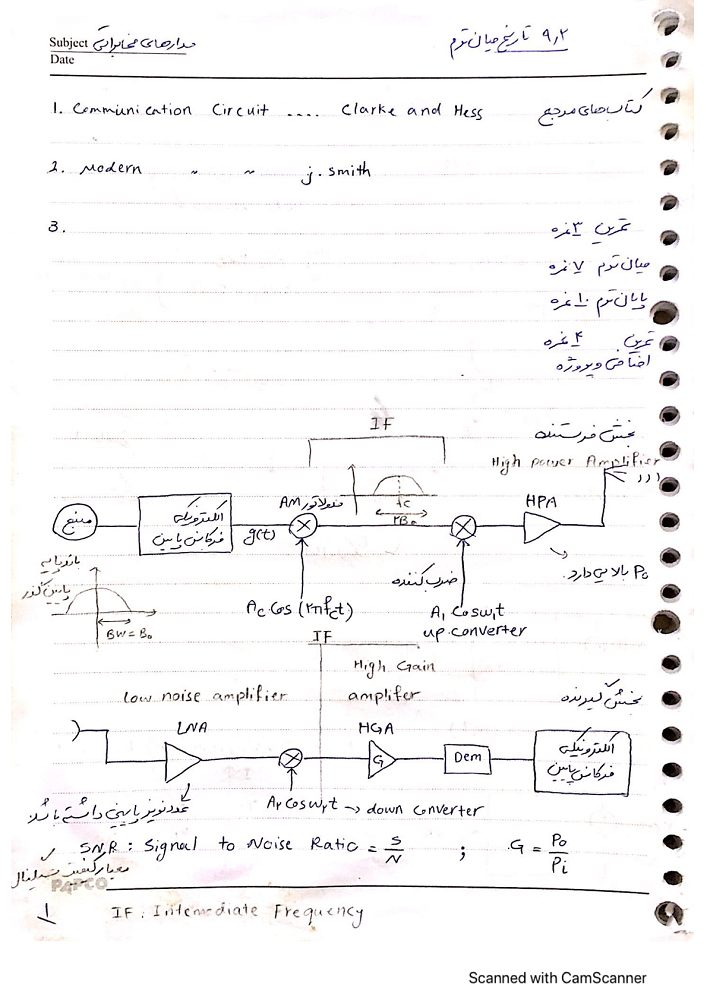 Subject مدارهای مخابراتی
تاریخ میان ترم ۹٫۲
Date
1. Communication Circuit .... Clarke and Hess کتاب‌های مرجع
2. Modern " " j. smith
3.
تمرین ۳ نمره
میان ترم ۷ نمره
پایان ترم ۱۰ نمره
تمرین ۴ نمره
اضافی و پروژه
IF
بخش فرستنده
High power Amplifier
منبع
الکترونیک
فرکانس پایین
g(t)
AM مدولاتور
fc
2B₀
HPA
باند پایه
پایین گذر
BW = B₀
Ac Cos (2πfct)
ضرب کننده
A₁ Cos ω₁t
up converter
P₀ بالایی دارد.
IF
High Gain
amplifer
low noise amplifier
بخش گیرنده
LNA
HGA
G
Dem
الکترونیک
فرکانس پایین
Ar Cos ωrt → down converter
عدد نویز پایینی داشته باشد
SNR : Signal to Noise Ratio = S/N ; G = Po/Pi
معیار کیفیت سیگنال
PAPCO
1
IF : Intemediate Frequency
Scanned with CamScanner